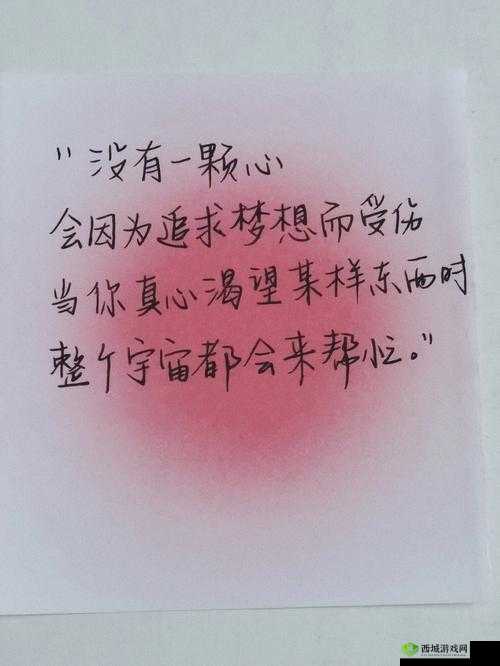 "没有一颗心
会因为追求梦想而受伤
当你真心渴望某样东西时
整个宇宙都会来帮忙。"
西城游戏网